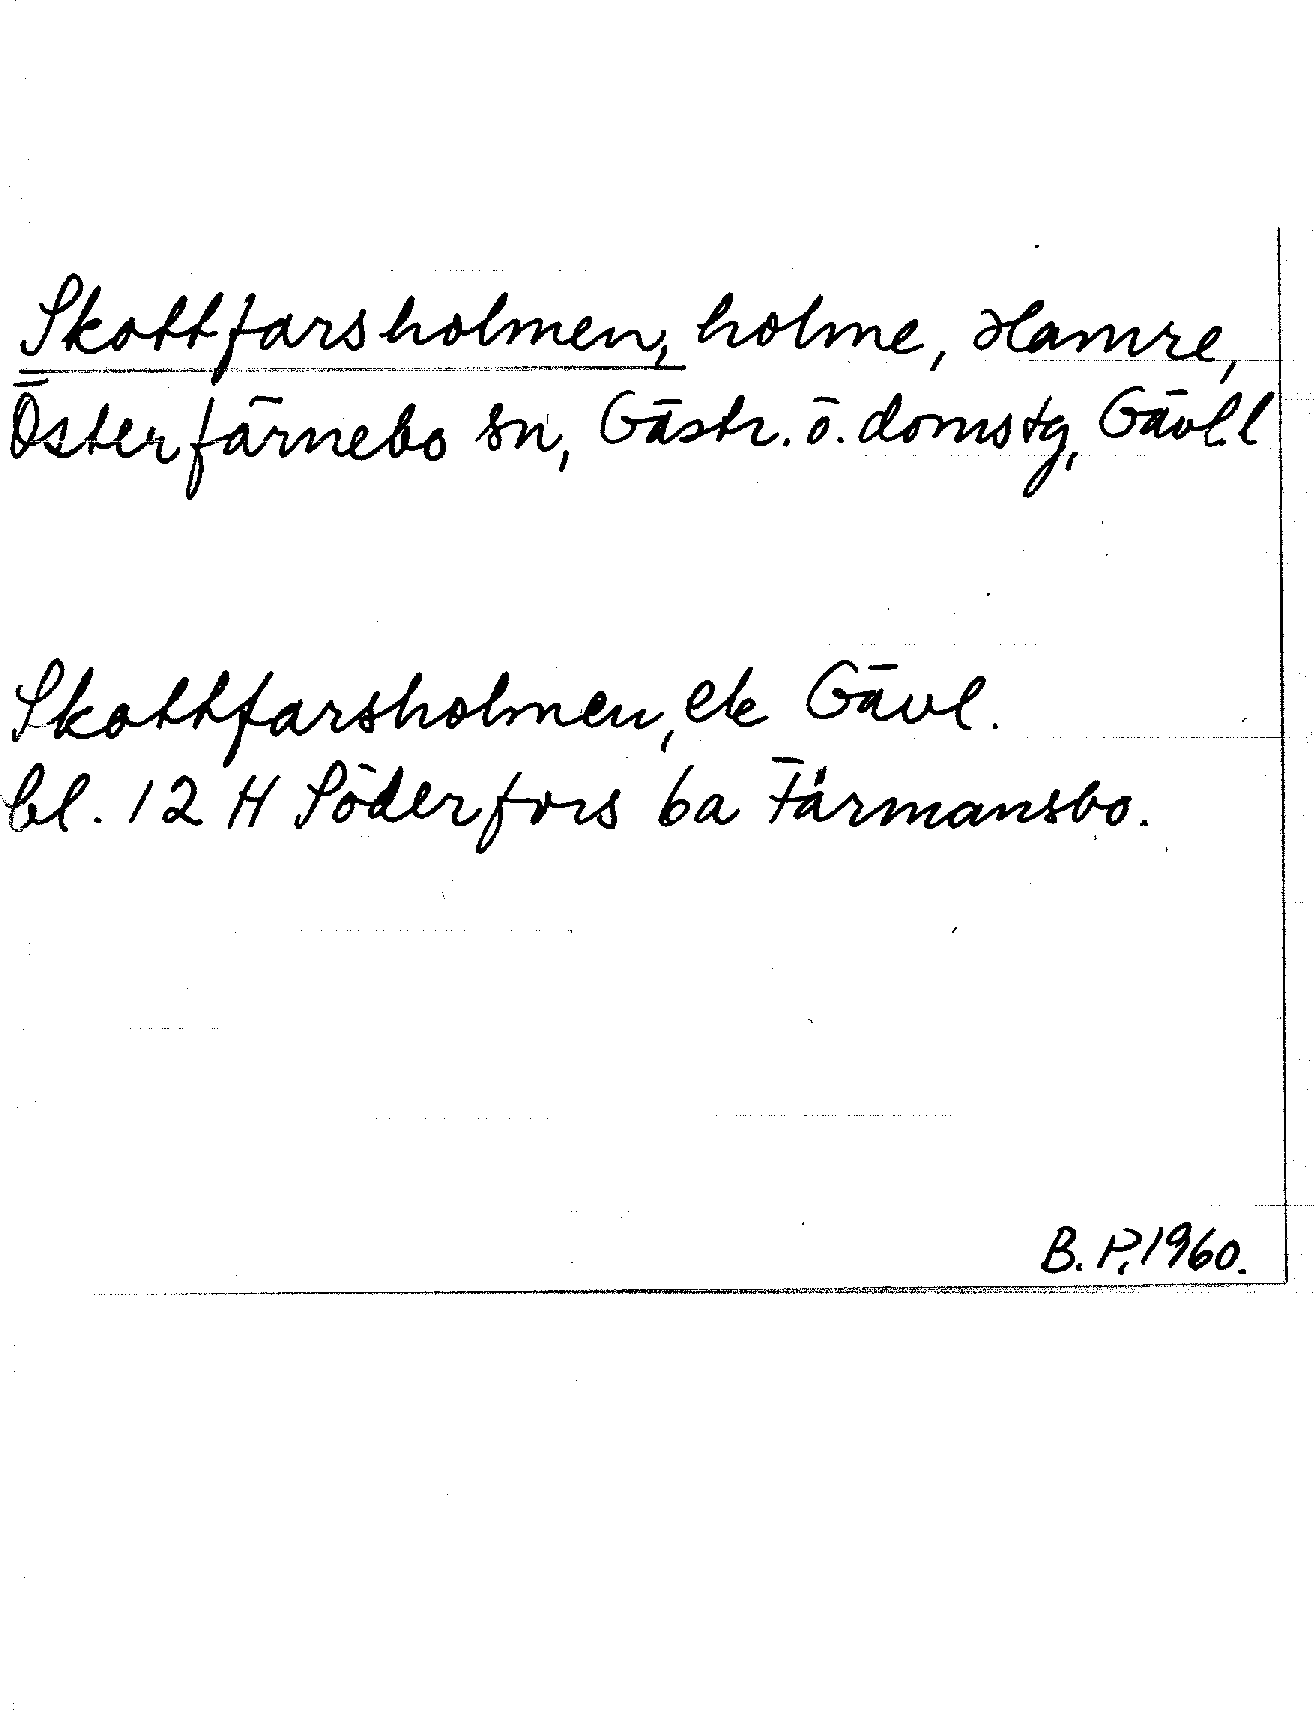 Skottfarsholmen, holme, Hamre,
Österfärnebo sn, Gästr. ö. domstg, Gävl.l
Skottfarsholmen, ek Gävl.
bl. 12 H Söderfors 6a Färmansbo.
B. P. 1960.